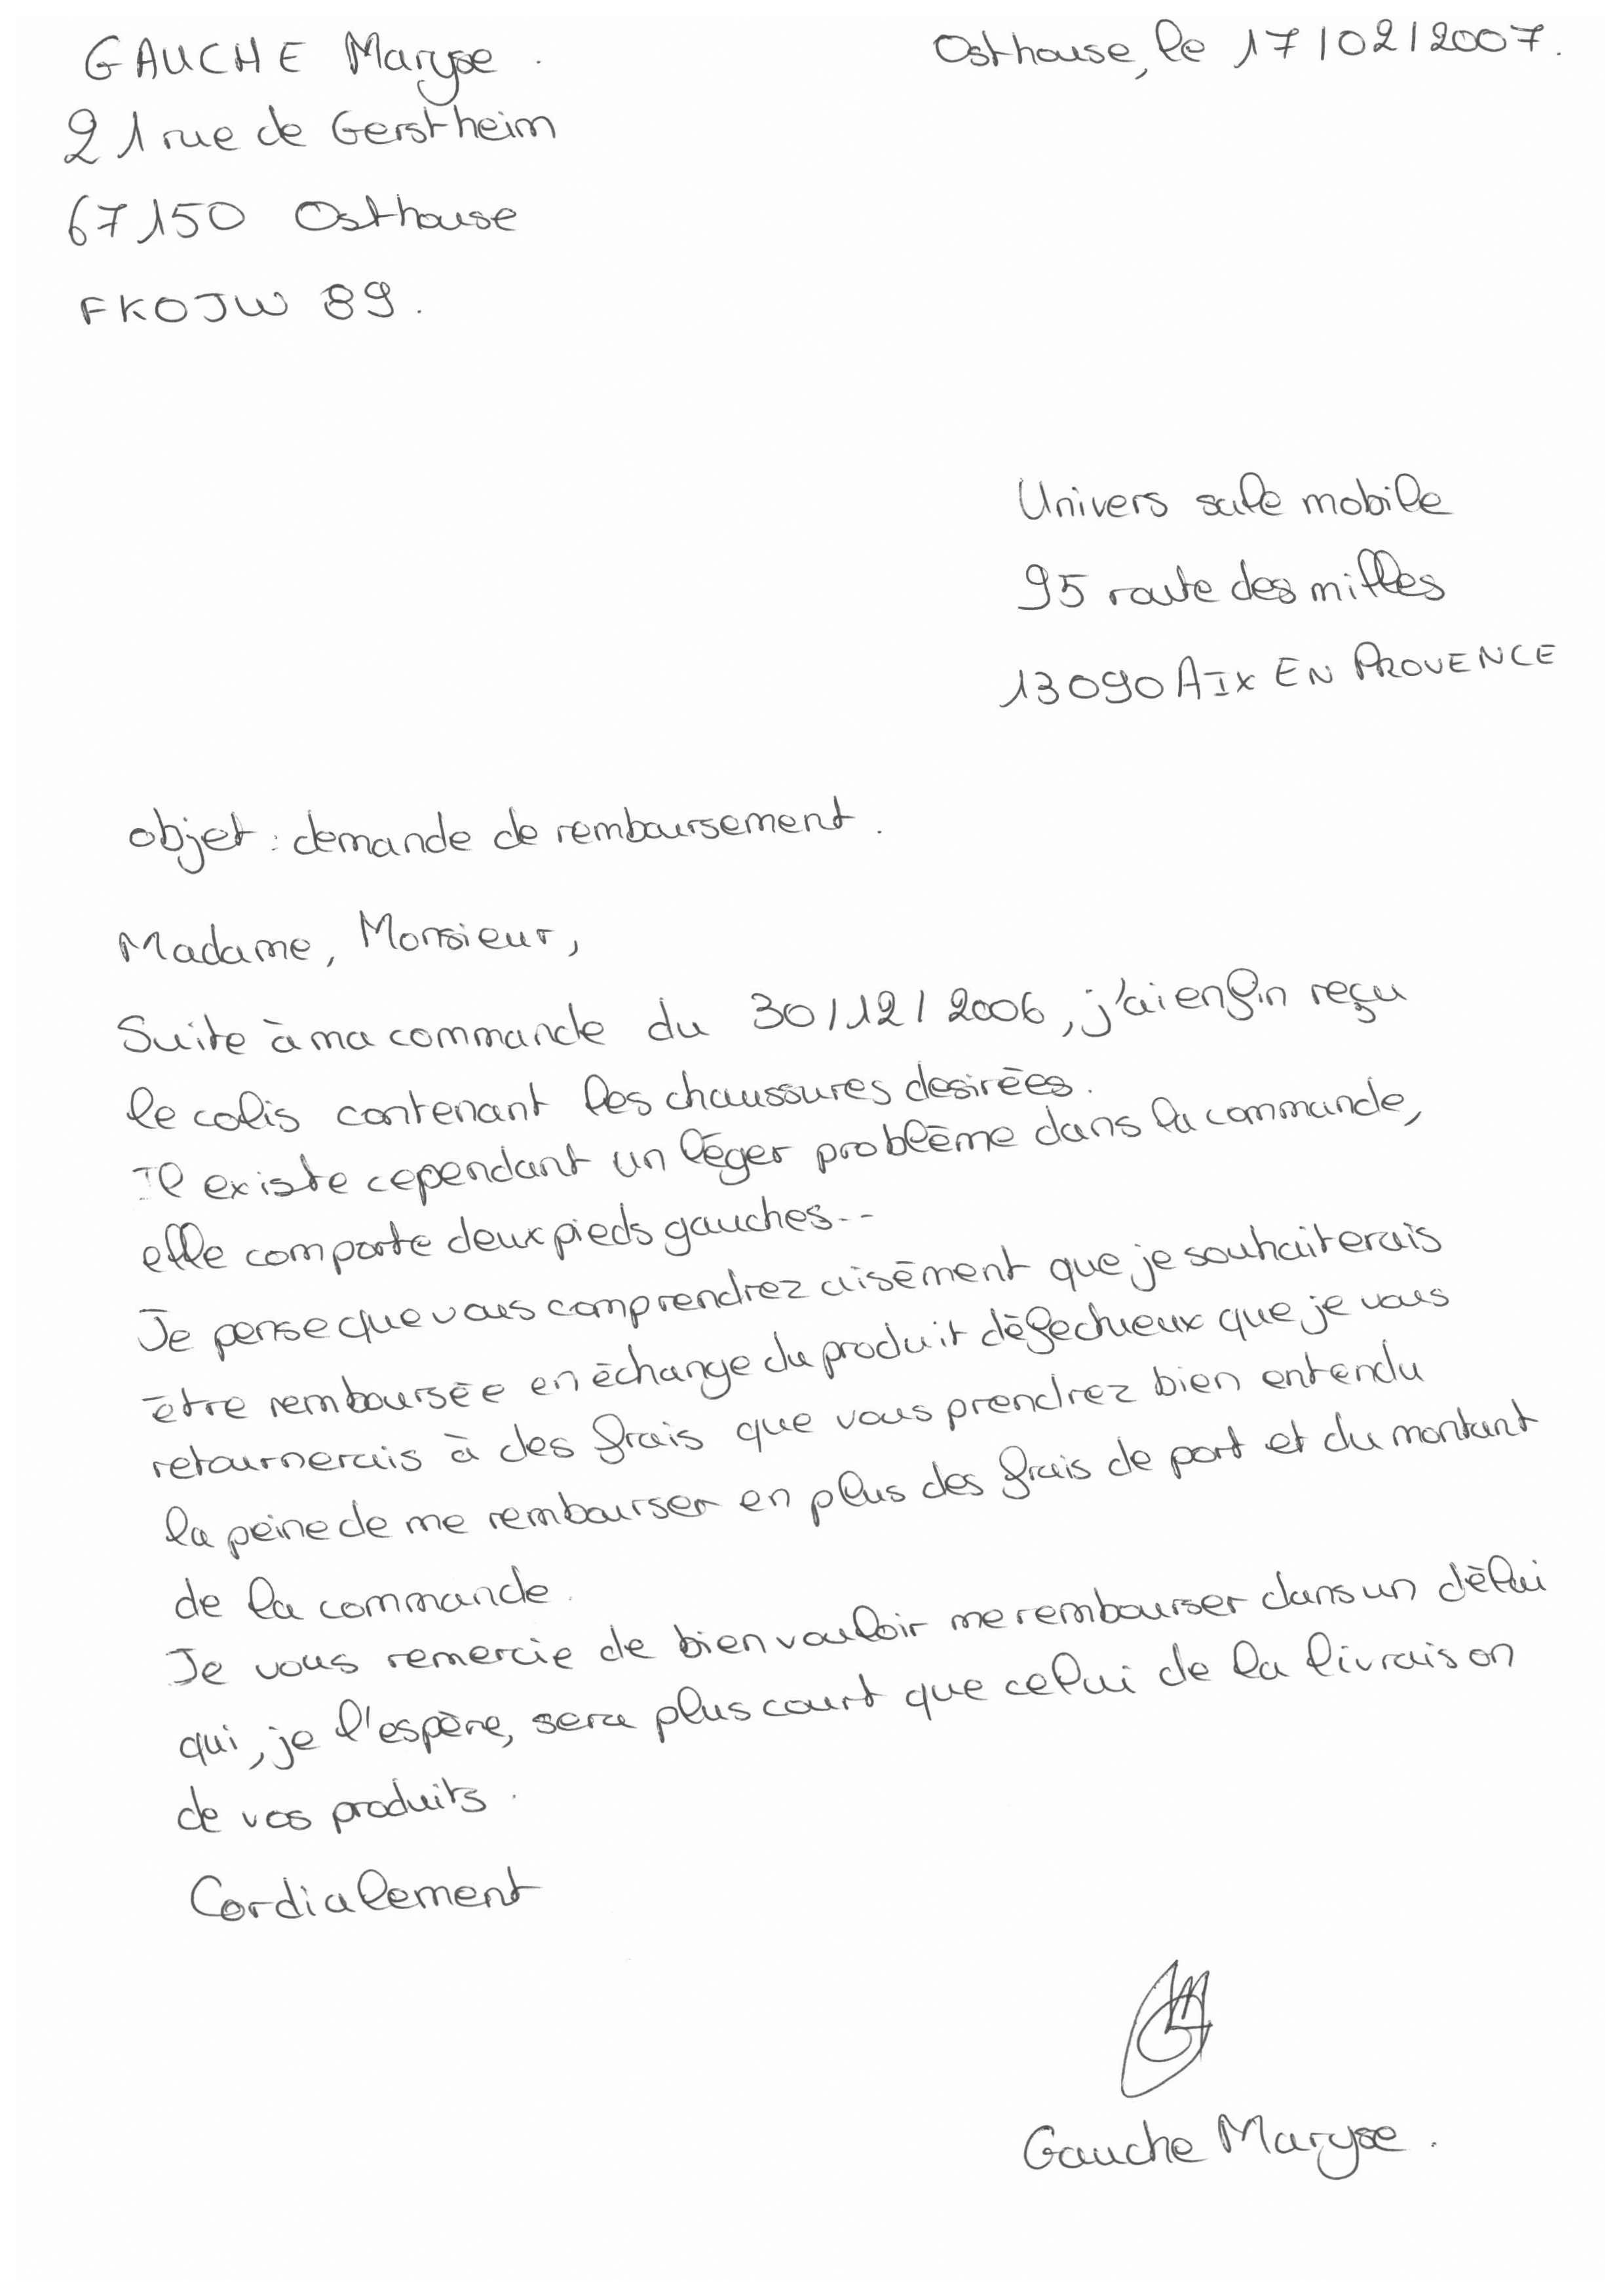 GAUCHE Maryse.
Osthouse, le 17/02/2007.
21 rue de Gerstheim
67150 Osthouse
FKOJW 89.
Univers sale mobile
95 route des milles
13090 AIX EN PROVENCE
objet : demande de remboursement.
Madame, Monsieur,
Suite à ma commande du 30/12/2006, j'ai enfin reçu
le colis contenant les chaussures desirées.
Il existe cependant un léger problème dans la commande,
elle comporte deux pieds gauches...
Je pense que vous comprendrez aisément que je souhaiterais
être remboursée en échange du produit défectueux que je vous
retournerais à des frais que vous prendrez bien entendu
la peine de me rembourser en plus des frais de port et du montant
de la commande.
Je vous remercie de bien vouloir me rembourser dans un délai
qui, je l'espère, sera plus court que celui de la livraison
de vos produits.
Cordialement
Gauche Maryse.